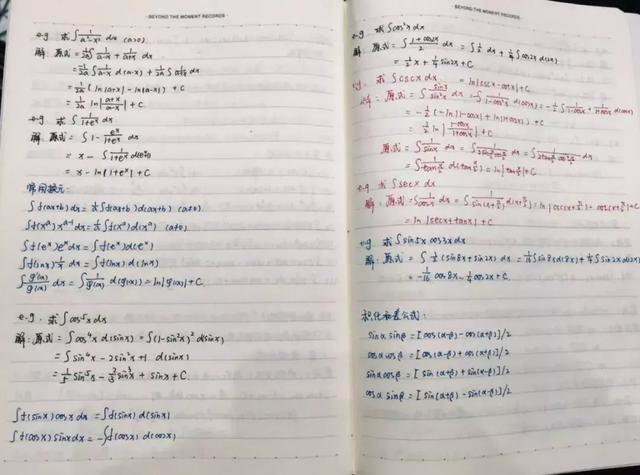 BEYOND THE MOMENT RECORDS
e.g 求∫1/(a²-x²) dx (a>0)
解: 原式 = 1/2a ∫ 1/(a-x) + 1/(a+x) dx
= -1/2a ∫ 1/(a-x) d(a-x) + 1/2a ∫ 1/(a+x) dx
= 1/2a (ln|a+x| - ln|a-x|) + C
= 1/2a ln|(a+x)/(a-x)| + C
e.g 求∫1/(1+eˣ) dx
解: 原式 = ∫ 1 - eˣ/(1+eˣ) dx
= x - ∫ 1/(1+eˣ) d(eˣ)
= x - ln|1+eˣ| + C
常用换元:
∫f(ax+b)dx = 1/a ∫f(ax+b) d(ax+b) (a≠0)
∫f(xᵃ)xᵃ⁻¹dx = 1/a ∫f(xᵃ)d(xᵃ) (a≠0)
∫f(eˣ)eˣdx = ∫f(eˣ)d(eˣ)
∫f(lnx)1/x dx = ∫f(lnx) d(lnx)
∫g'(x)/g(x) dx = ∫1/g(x) d(g(x)) = ln|g(x)| + C
e.g: 求∫cos⁵x dx
解: 原式 = ∫cos⁴x d(sinx) = ∫(1-sin²x)² d(sinx)
= ∫sin⁴x - 2sin²x + 1 d(sinx)
= 1/5 sin⁵x - 2/3 sin³x + sinx + C
∫f(sinx)cosx dx = ∫f(sinx) d(sinx)
∫f(cosx)sinx dx = -∫f(cosx) d(cosx)
BEYOND THE MOMENT RECORDS
e.g 求∫cos²x dx
解: 原式 = ∫(1+cos2x)/2 dx = ∫1/2 dx + 1/4 ∫cos2x d(2x)
= 1/2 x + 1/4 sin2x + C
e.g. 求∫cscx dx = ln|cscx-cotx| + C
解: 原式 = ∫sinx/sin²x dx = -∫1/(1-cos²x) d(cosx) = -1/2 ∫1/(1-cosx) + 1/(1+cosx) d(cosx)
= -1/2 (-ln|1-cosx| + ln|1+cosx|) + C
= 1/2 ln|(1-cosx)/(1+cosx)| + C
原式 = ∫1/sinx dx = ∫1/(2sin x/2 cos x/2) dx = ∫1/(2tan x/2 cos² x/2) dx
= ∫1/(tan x/2) d(tan x/2) = ln|tan x/2| + C
e.g 求∫secx dx
解: 原式 = ∫1/cosx dx = ∫1/sin(x+π/2) d(x+π/2) = ln|csc(x+π/2) - cot(x+π/2)| + C
= ln|secx+tanx| + C
e.g. 求∫sin5x cos3x dx
解: 原式 = ∫1/2 (sin8x + sin2x) dx = 1/16 ∫sin8x d(8x) + 1/4 ∫sin2x d(2x)
= -1/16 cos8x - 1/4 cos2x + C
积化和差公式:
sinα sinβ = [cos(α-β) - cos(α+β)]/2
cosα cosβ = [cos(α-β) + cos(α+β)]/2
sinα cosβ = [sin(α+β) + sin(α-β)]/2
cosα sinβ = [sin(α+β) - sin(α-β)]/2